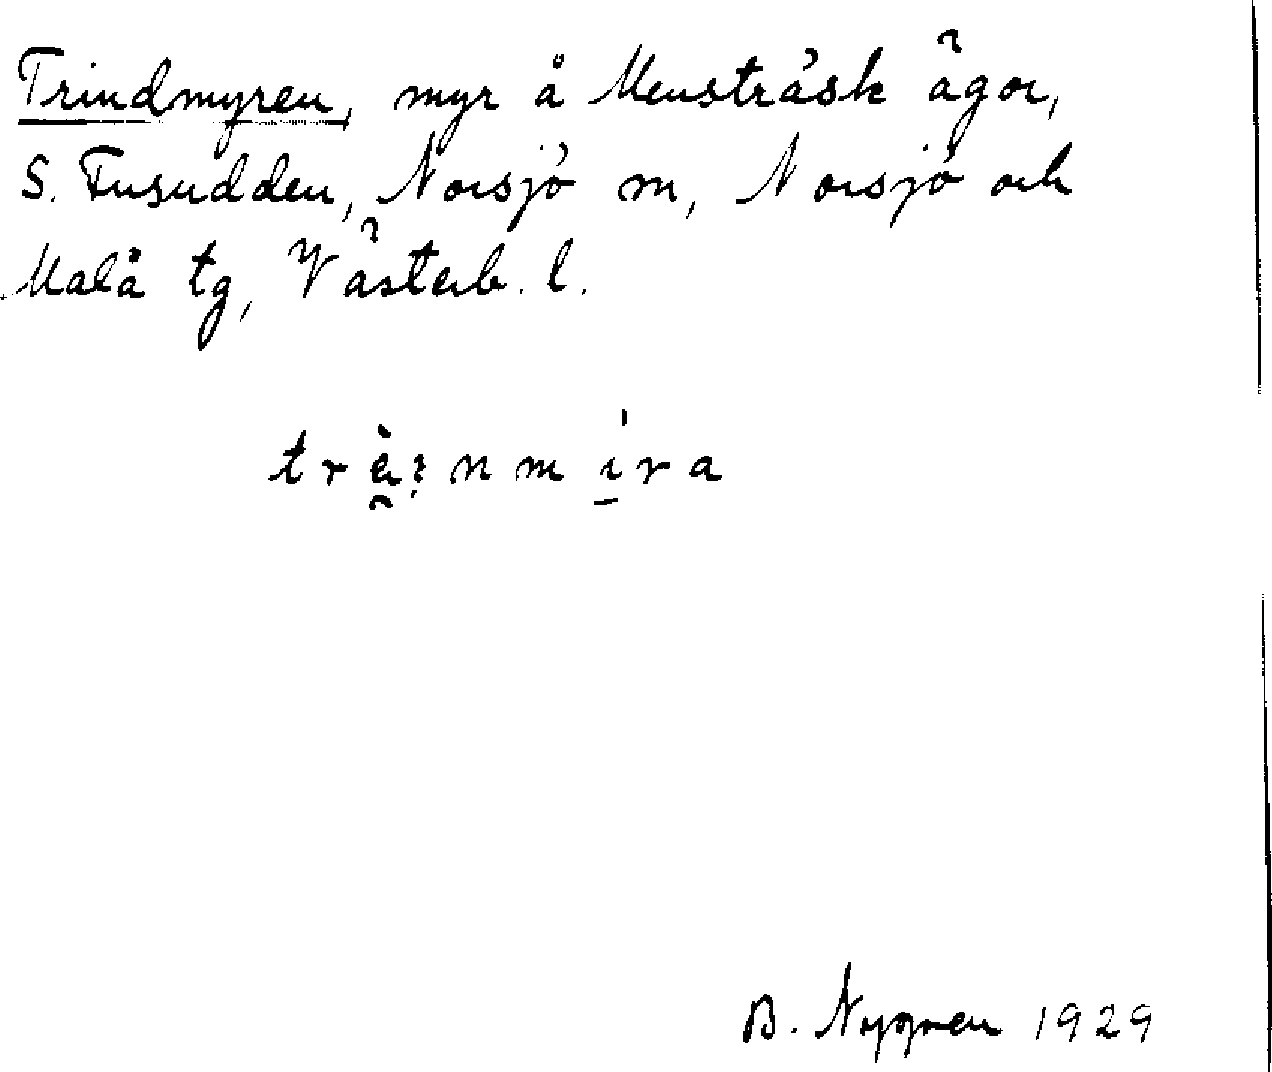 Trindmyren, myr å Mensträsk ägor,
S. Tusudden, Norsjö sn, Norsjö och
Malå tg, Västerb. l.
B. Nygren 1929